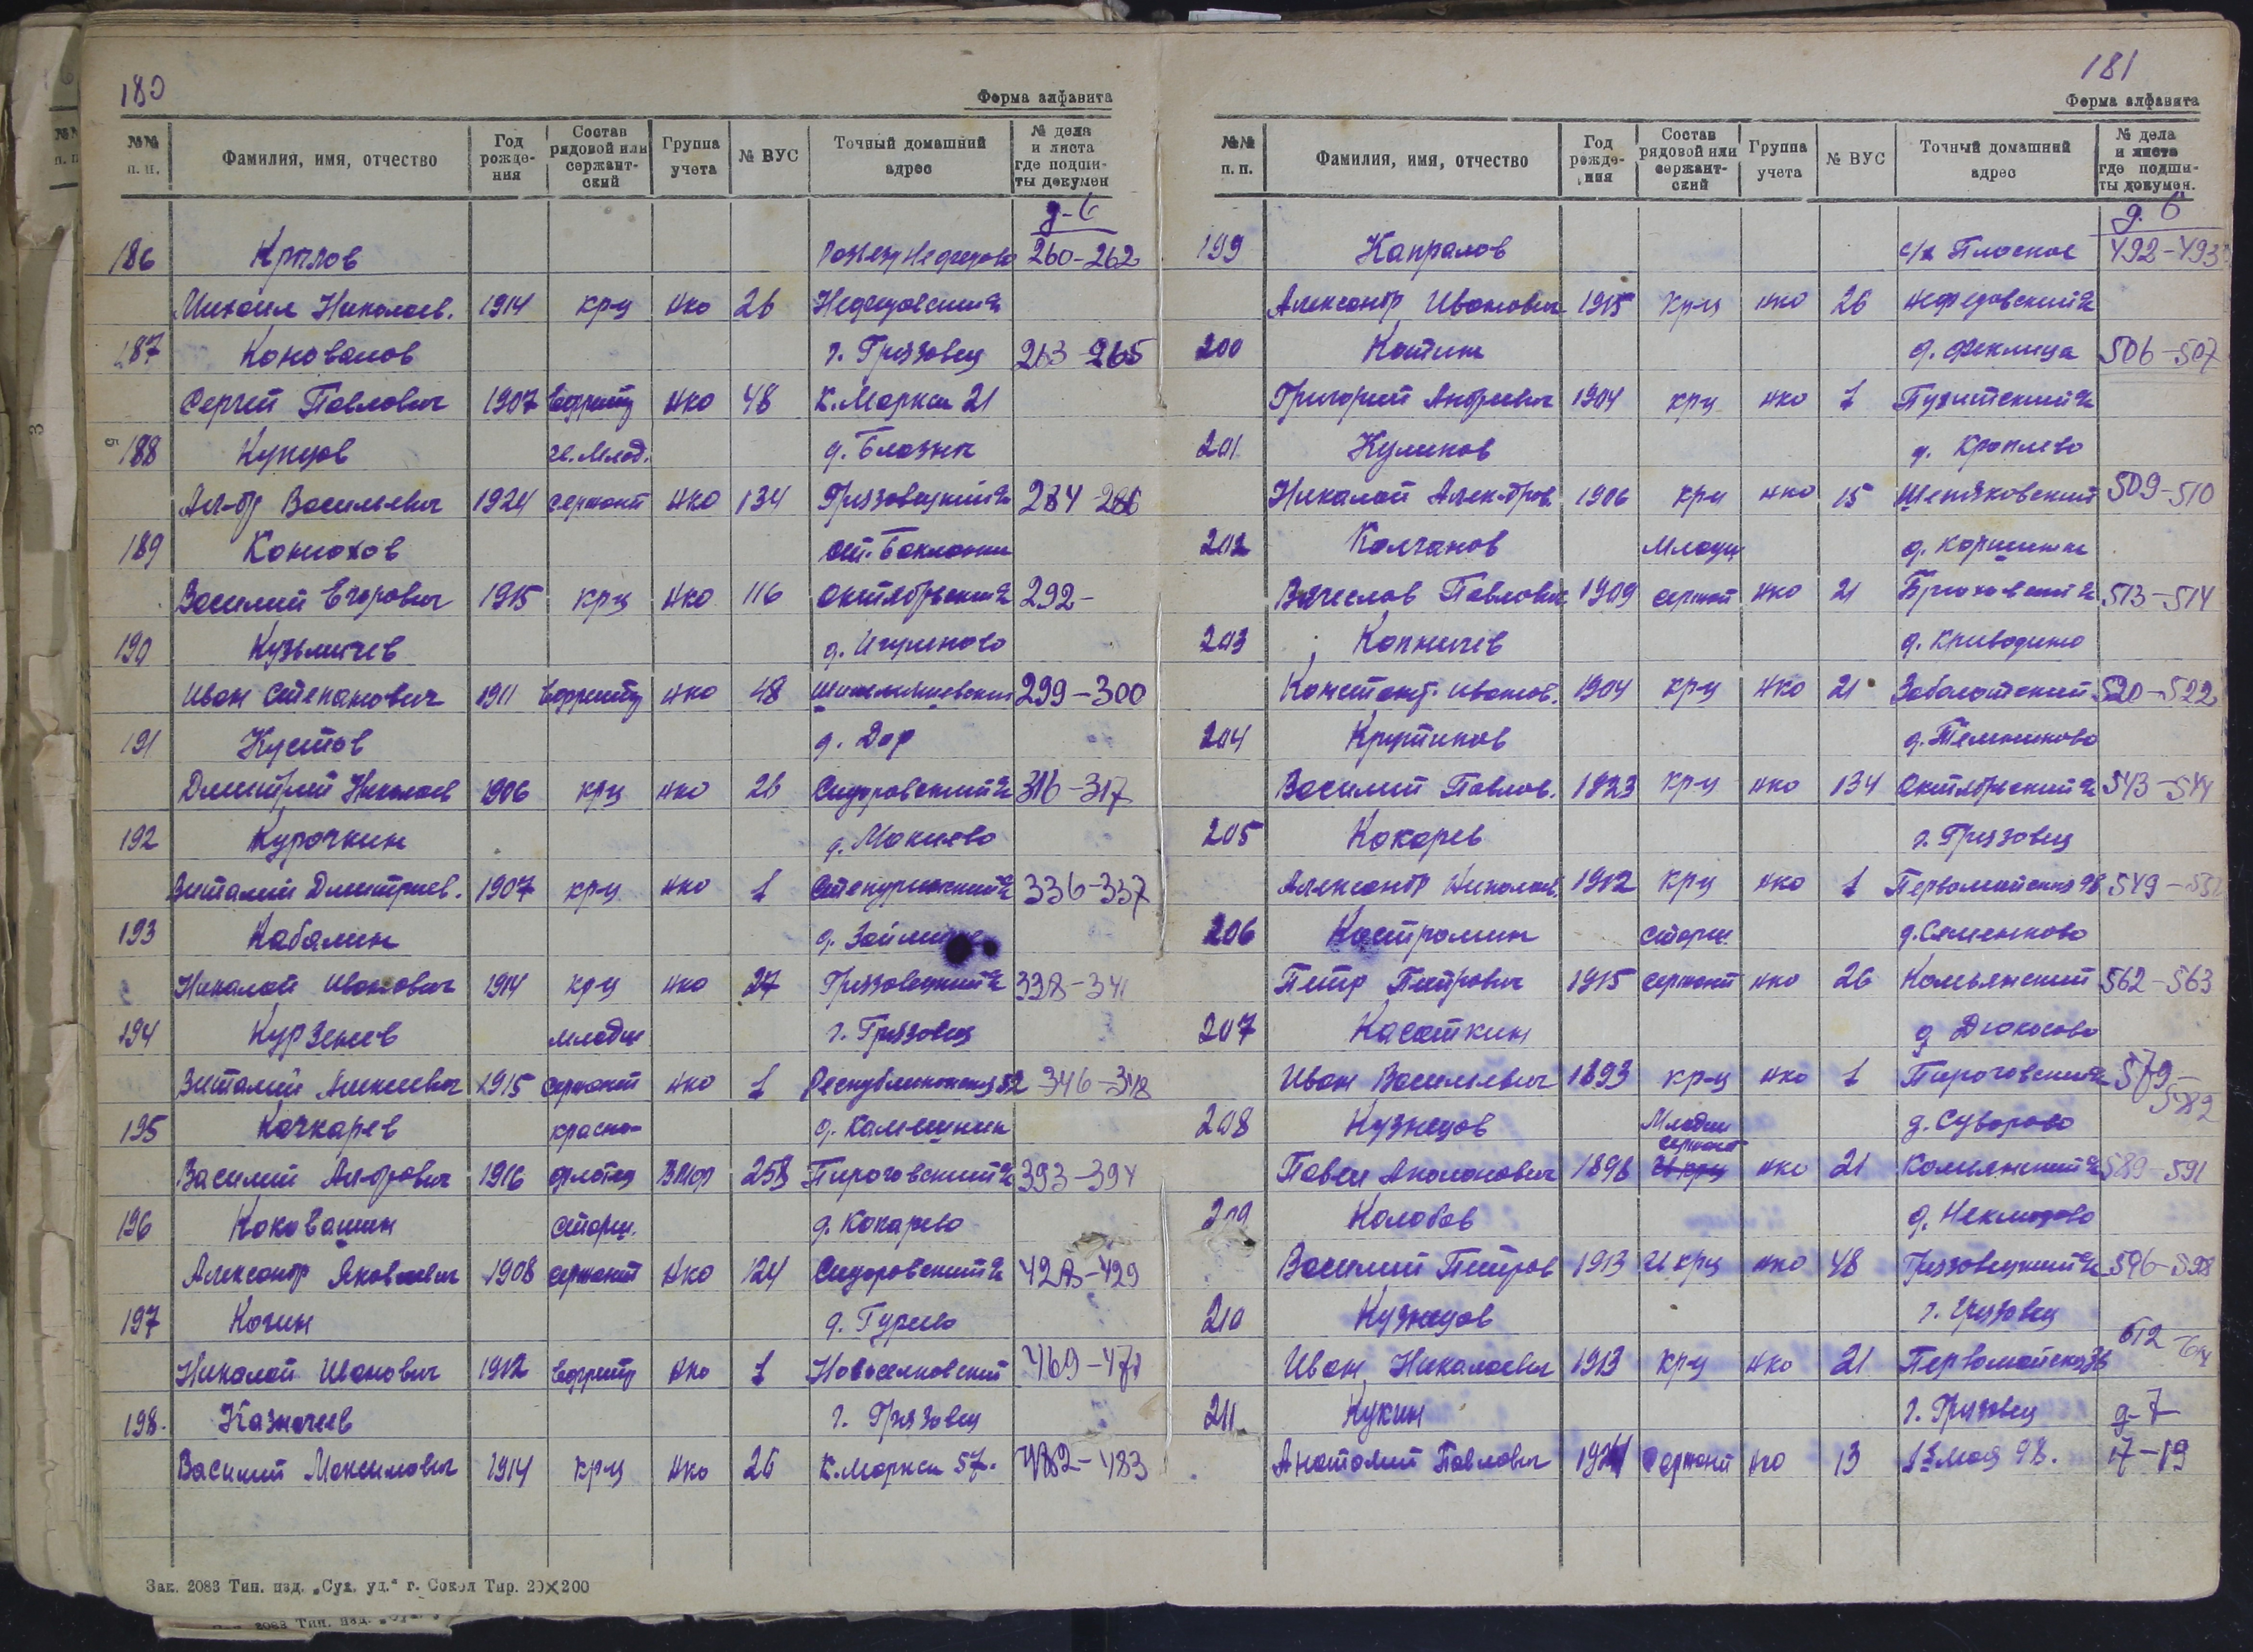 180
Форма алфавита
№№ п. п. Фамилия, имя, отчество Год рождения Состав рядовой или сержантский Группа учета № ВУС Точный домашний адрес № дела и листа где подшиты докумен
д-6
186 Крылов 260-262
Михаил Николаев. 1914 кр-ц нко 26 Нефедовский
187 Коновалов г. Грязовец 263-265
Сергей Павлович 1907 Ефрейт нко 48 К. Маркса 21
188 Купцов д. Блазны
Ал-др Васильевич 1924 сержант нко 134 Грязовецкий 284-286
189 Конюхов ст. Бакланка
Василий Егорович 1915 кр-ц нко 116 Октябрьский 292-
190 Кузьмичев д. Игумново
Иван Степанович 1911 Ефрейтор нко 48 299-300
191 Кустов д. Дор
Дмитрий Николаев 1906 кр-ц нко 26 Сидоровский 316-317
192 Курочкин д. Макиево
Виталий Дмитриев. 1907 кр-ц нко 1 Степуринский 336-337
193 Кабалин
Николай Иванович 1914 кр-ц нко 27 Грязовецкий 338-341
194 Курзенев младш г. Грязовец
Виталий Алексеевич 1915 сержант нко 1 Республиканская 52 346-348
195 Кочкарев красно- д. Камешник
Василий Ал-дрович 1916 флотец ВМФ 258 Пироговский 393-394
196 Коковашин старш. д. Кокарево
Александр Яковлевич 1908 сержант нко 124 Сидоровский 428-429
197 Когин д. Гурево
Николай Иванович 1912 Ефрейтр нко 1 Новоселковский 469-471
198. Казначеев г. Грязовец
Василий Максимович 1914 кр-ц нко 26 К. Маркса 57. 482-483
Зак. 2083 Тип. изд. „Сух. уд.“ г. Сокол Тир. 20×200
181
Форма алфавита
№№ п. п. Фамилия, имя, отчество Год рождения Состав рядовой или сержантский Группа учета № ВУС Точный домашний адрес № дела и листа где подшиты докумен.
д. 6
199 Капралов с/х Плоское 492-493
Александр Иванович 1915 кр-ц нко 26 Нефедовский
200 Котин д. Феклица 506-507
Григорий Андреевич 1904 кр-ц нко 1
201 Куликов д. Кроплево
Николай Алек-дров. 1906 кр-ц нко 15 509-510
202 Колчанов Младш
Вячеслав Павлович 1909 сержант нко 21 513-514
203 Копничев д. Криводино
Констант. Иванов. 1904 кр-ц нко 21 Заболотский 520-522
204 Крутиков д. Темниково
Василий Павлов. 1923 кр-ц нко 134 Октябрьский 543-544
205 Кокарев г. Грязовец
Александр Николаев. 1912 кр-ц нко 1 Первомайская 98 549-
206 Костромин старш. д. Семенково
Петр Петрович 1915 сержант нко 26 Комьянский 562-563
207 Касаткин д Дюкосово
Иван Васильевич 1893 кр-ц нко 1 Пироговский 579-582
208 Кузнецов Младш сержант д. Суворово
Павел 1898 нко 21 Комьянский 589-591
209 Колобов д. Неклюдово
Василий Петров 1913 кр-ц нко 48 Грязовецкий 596-598
210 Кузнецов г. Грязовец
Иван Николаевич 1913 кр-ц нко 21 612
211. Кукин г. Грязовец д-7
Анатолий Павлович сержант нко 13 1е мая 98. 17-19